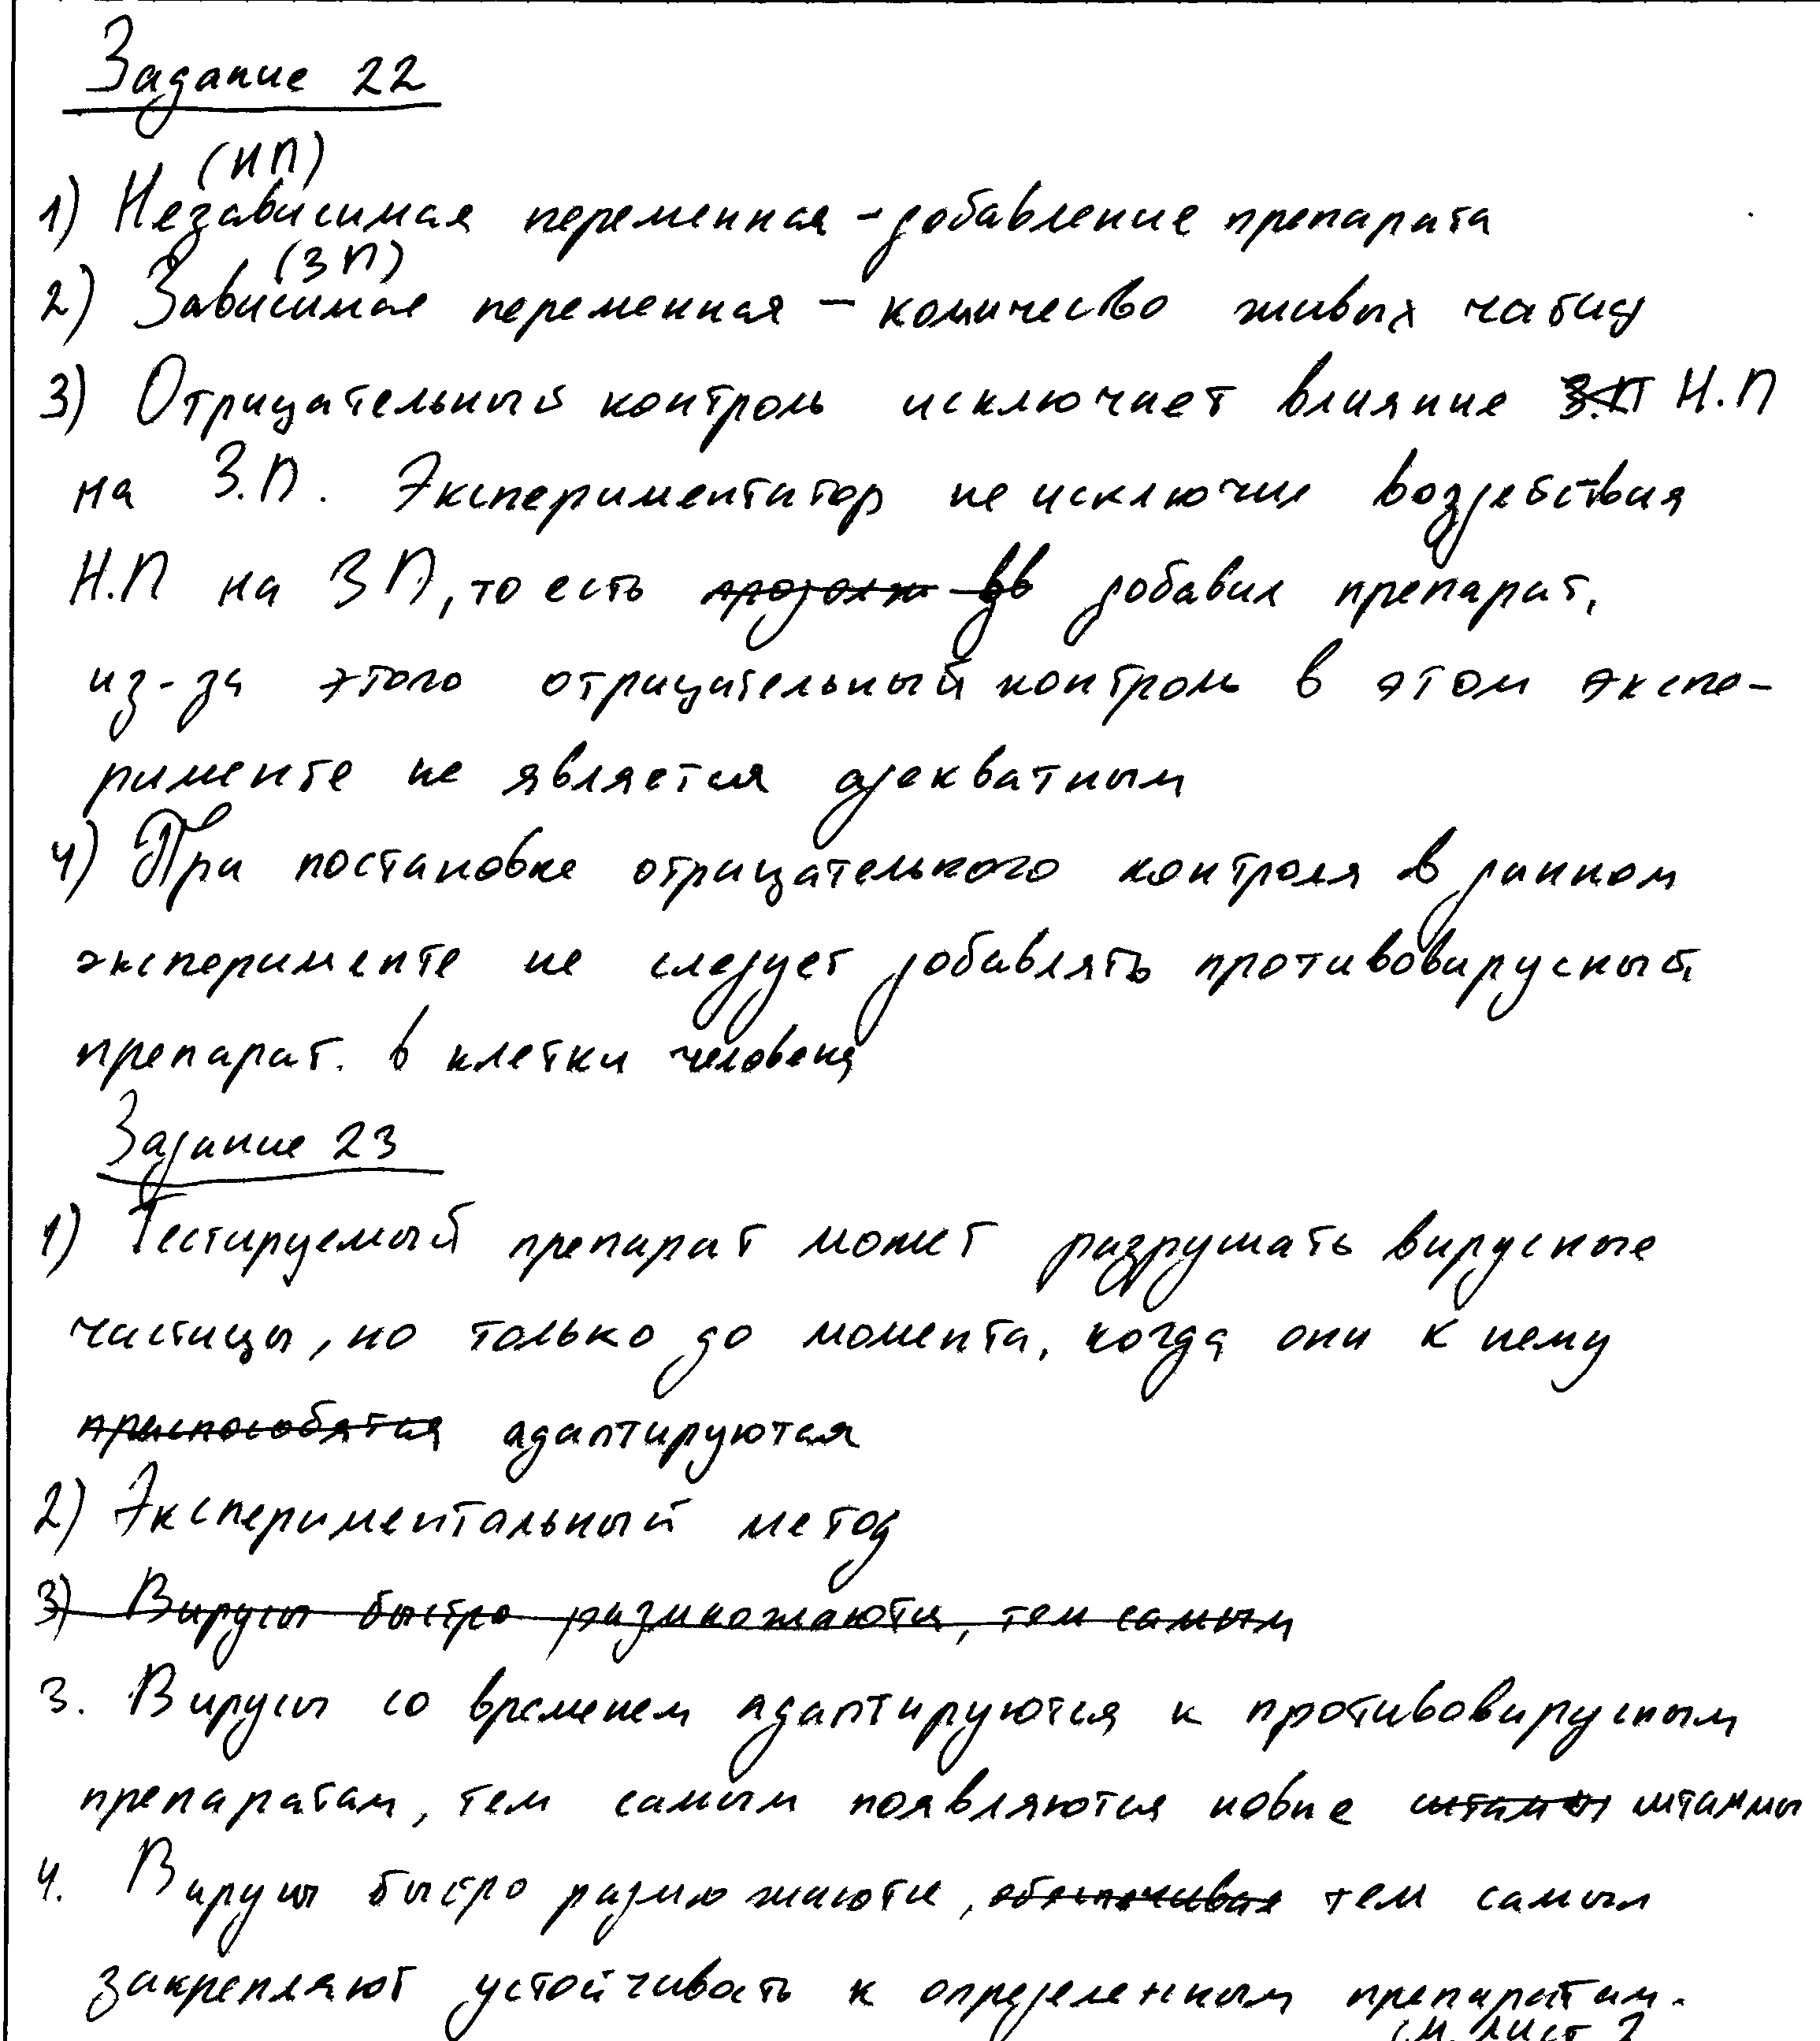 Задание 22
(НП)
1) Независимая переменная – добавление препарата
(ЗП)
2) Зависимая переменная – количество живых чатиц
3) Отрицательный контроль исключает влияние З.П Н.П
на З.П. Экспериментатор не исключил воздействия
Н.П на ЗП, то есть продолж вв добавил препарат,
из-за этого отрицательный контроль в этом экспе-
рименте не является адекватным
4) При постановке отрицательного контроля в данном
эксперименте не следует добавлять противовирусный
препарат. в клетки человека
Задание 23
1) Тестируемый препарат может разрушать вирусные
частицы, но только до момента, когда они к нему
приспособятся адаптируются
2) Экспериментальный метод
3) Вирусы быстро размножаются, тем самым
3. Вирусы со временем адаптируются к противовирусным
препаратам, тем самым появляются новые штамы штаммы
4. Вирусы быстро размножаются, обеспечивая тем самым
закрепляют устойчивать к определенным препаратам.
см. лист 2